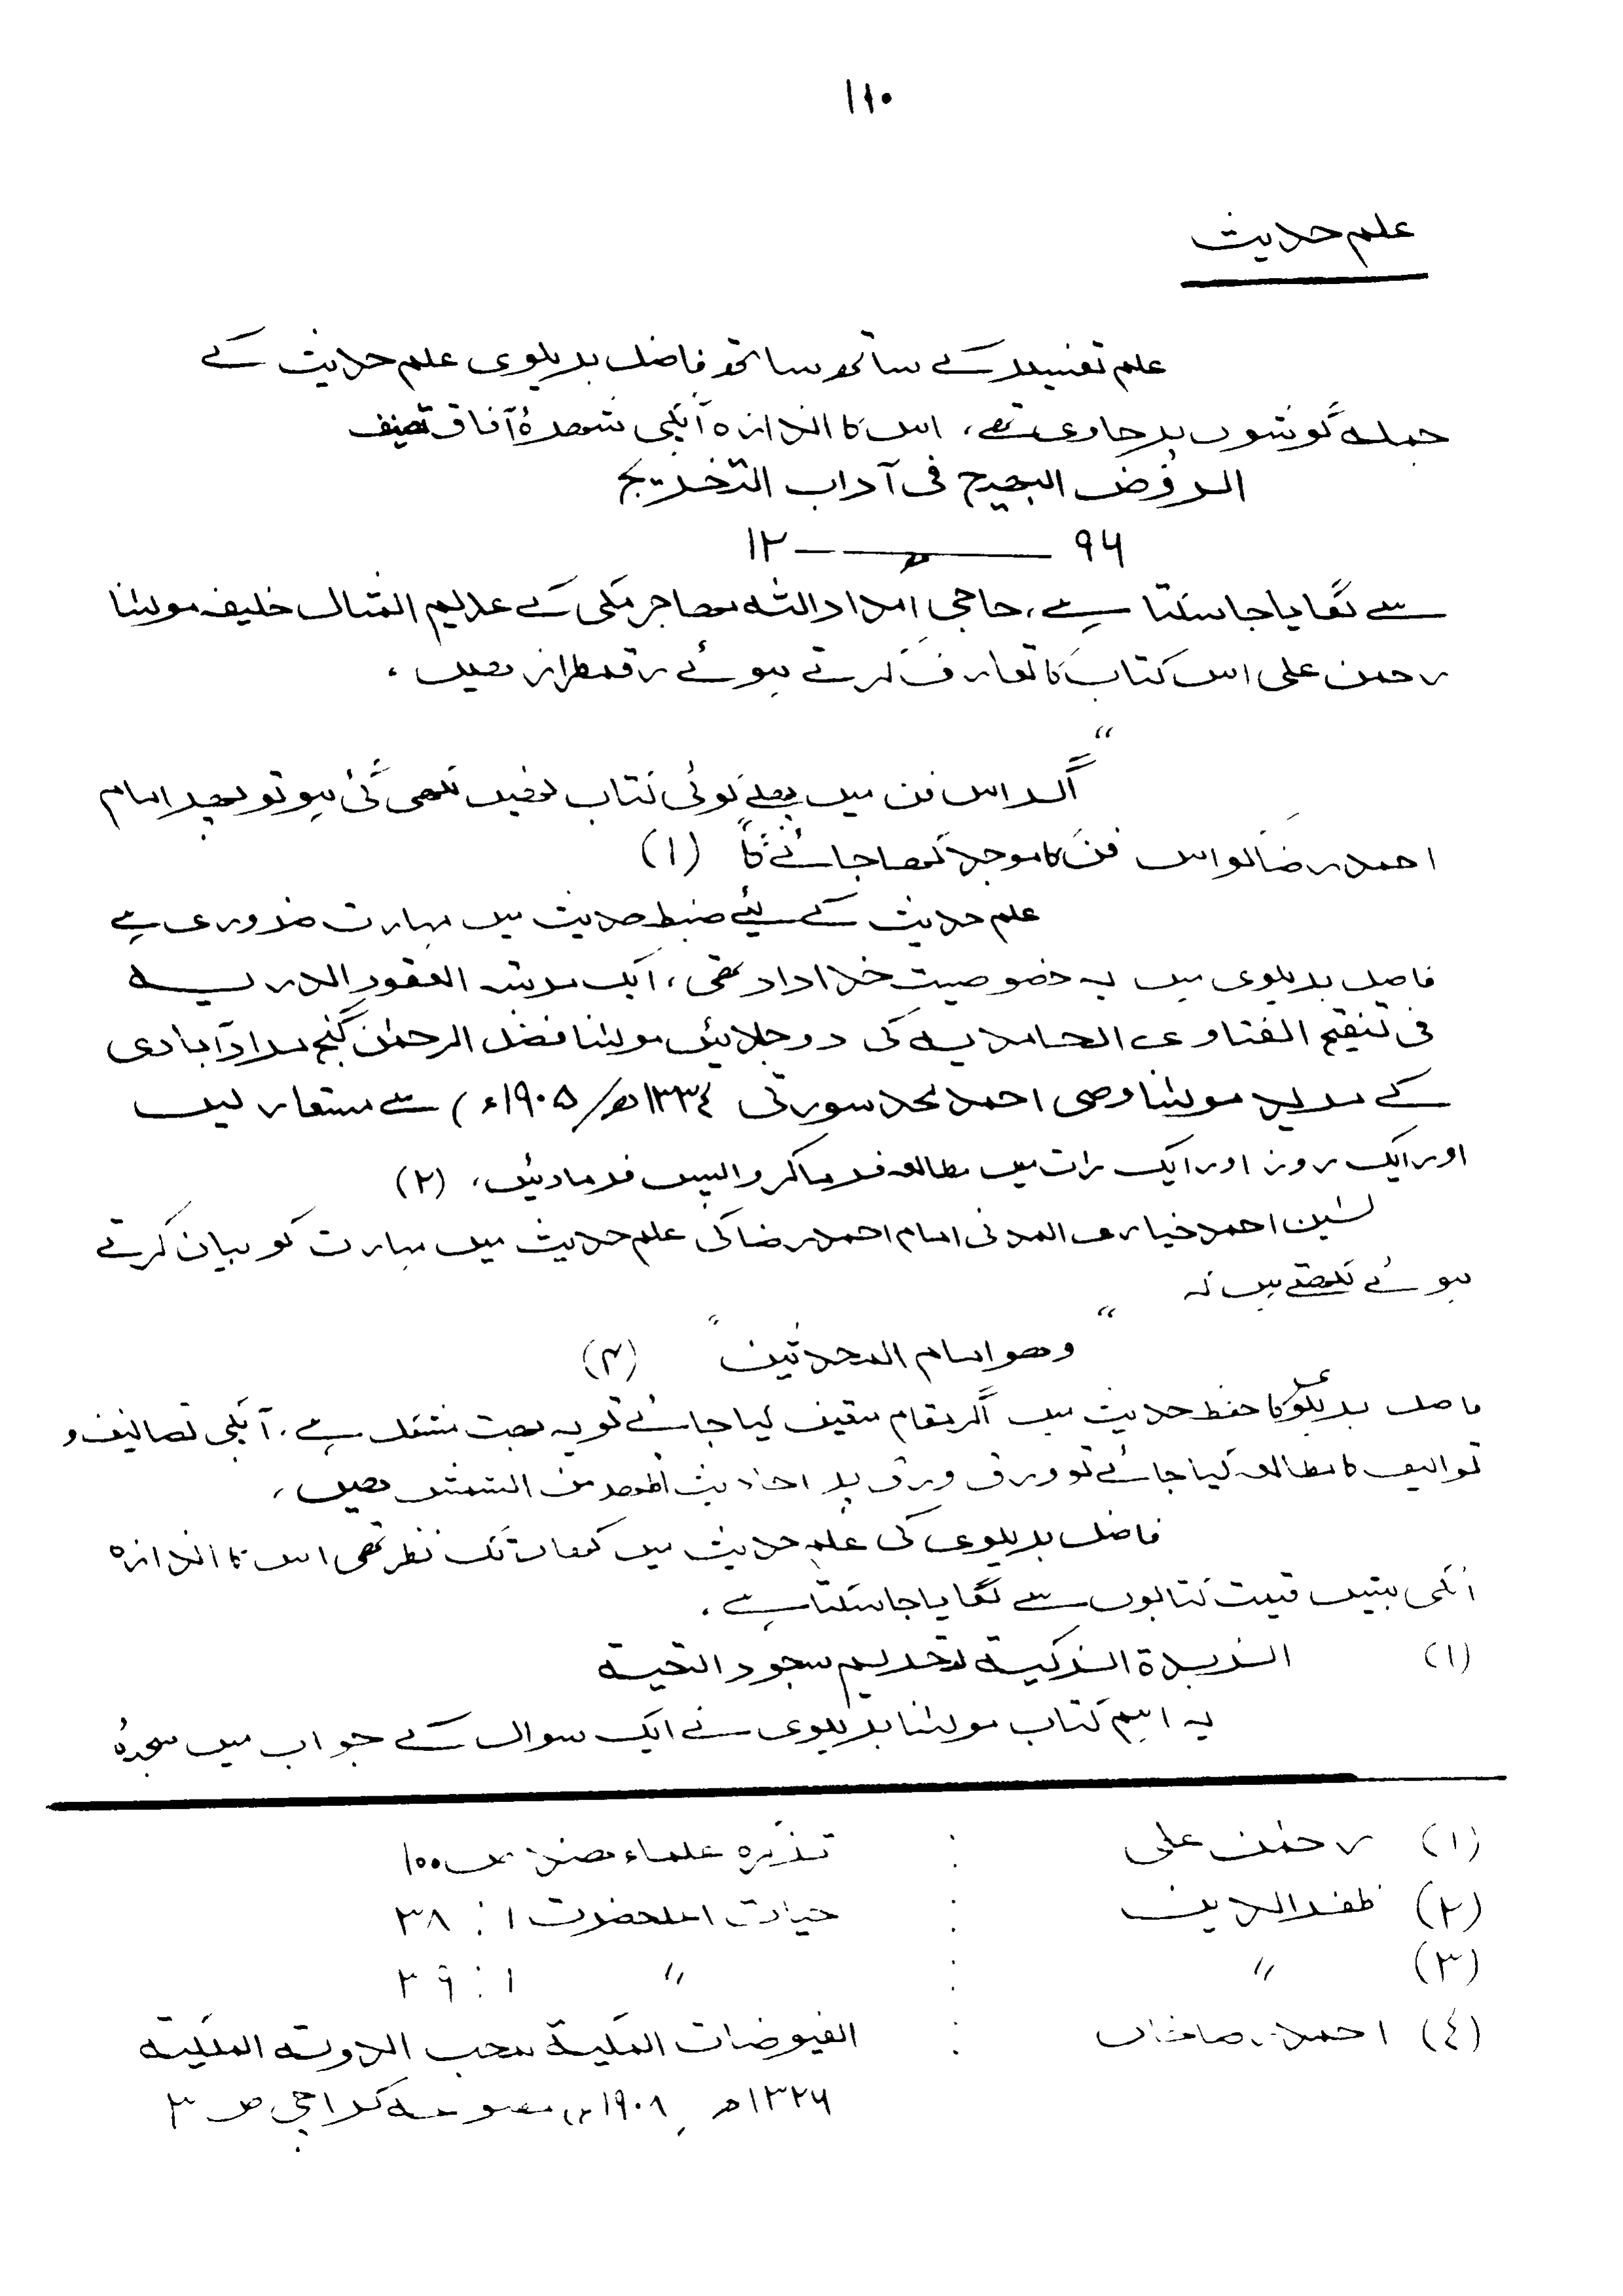 ۱۱۰
علم حدیث
علم تفسیر کے ساتھ ساتھ فاضل بریلوی علم حدیث کے
جملہ گوشوں پر حاوی تھے، اس کا اندازہ آپکی شھرۂ آفاق تصنیف
الروض البھیج فی آداب التخریج
۱۲ ــــــ ھ ــــــ ۹۶
سے لگایا جاسکتا ہے، حاجی امداد اللہ مھاجر مکی کے عدیم المثال خلیفہ مولٰنا
رحمن علی اس کتاب کا تعارف کرتے ہوئے رقمطراز ھیں،
"اگر اس فن میں پھلے کوئی کتاب نھیں لکھی گئی ہو تو پھر امام
احمد رضا کو اس فن کا موجد کھا جائے گا" (۱)
علم حدیث کے لئے ضبط حدیث میں مہارت ضروری ہے
فاضل بریلوی میں یہ خصوصیت خداداد تھی، ایک مرتبہ العقود الدریہ
فی تنقیح الفتاوی الحامدیہ کی دو جلدیں مولٰنا فضل الرحمٰن گنج مرادآبادی
کے مرید مولٰنا وصی احمد محدث سورتی ۱۳۳٤ھ/۱۹۰۵ء) سے مستعار لیں
اور ایک روز اور ایک رات میں مطالعہ فرما کر واپس فرما دیں، (۲)
یٰسین احمد خیاری المدنی امام احمد رضا کی علم حدیث میں مہارت کو بیان کرتے
ہوئے لکھتے ہیں کہ
"وھو امام المحدثین" (۳)
فاضل بریلوی کا حفظ حدیث میں اگر مقام متعین کیا جائے تو یہ بھت مشکل ہے، آپکی تصانیف و
توالیف کا مطالعہ کیا جائے تو ورق ورق پر احادیث اظھر من الشمس ھیں،
فاضل بریلوی کی علم حدیث میں کھاں تک نظر تھی اس کا اندازہ
انکی بیش قیمت کتابوں سے لگایا جاسکتا ہے.
(۱) الزبدة الزکیة لتحریم سجود التحیة
یہ اہم کتاب مولٰنا بریلوی نے ایک سوال کے جواب میں سجدۂ
(۱) رحمٰن علی : تذکرہ علماء ھند ص ۱۰۰
(۲) ظفر الدین : حیات اعلحضرت ۱ : ۳۸
(۳) " : " ۱ : ۳۹
(٤) احمد رضا خاں : الفیوضات الملکیة لمحب الدولة المکیة
۱۳۲۶ھ ۱۹۰۸ء، مطبوعہ کراچی ص ۳